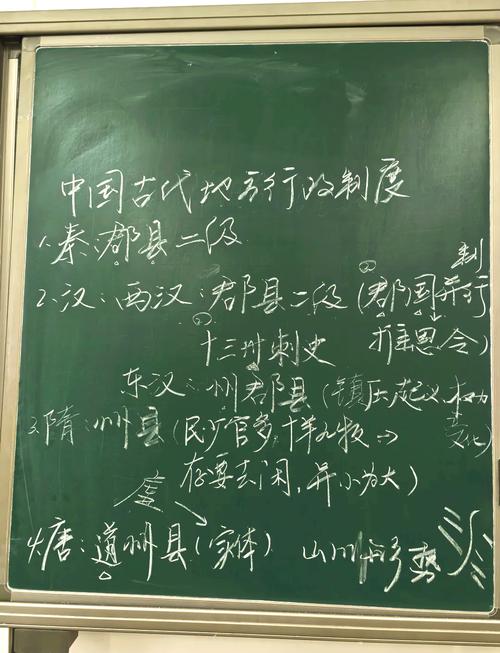 中国古代地方行政制度
1.秦:郡县二级
2.汉:西汉:郡县二级(②郡国并行制
①十三州刺史 推恩令)
东汉:州郡县(镇压起义,权力变化)
3.隋:州县(民少官多,十羊九牧→
存要去闲,并小为大)
虚
4.唐:道州县(实体) 山川形势